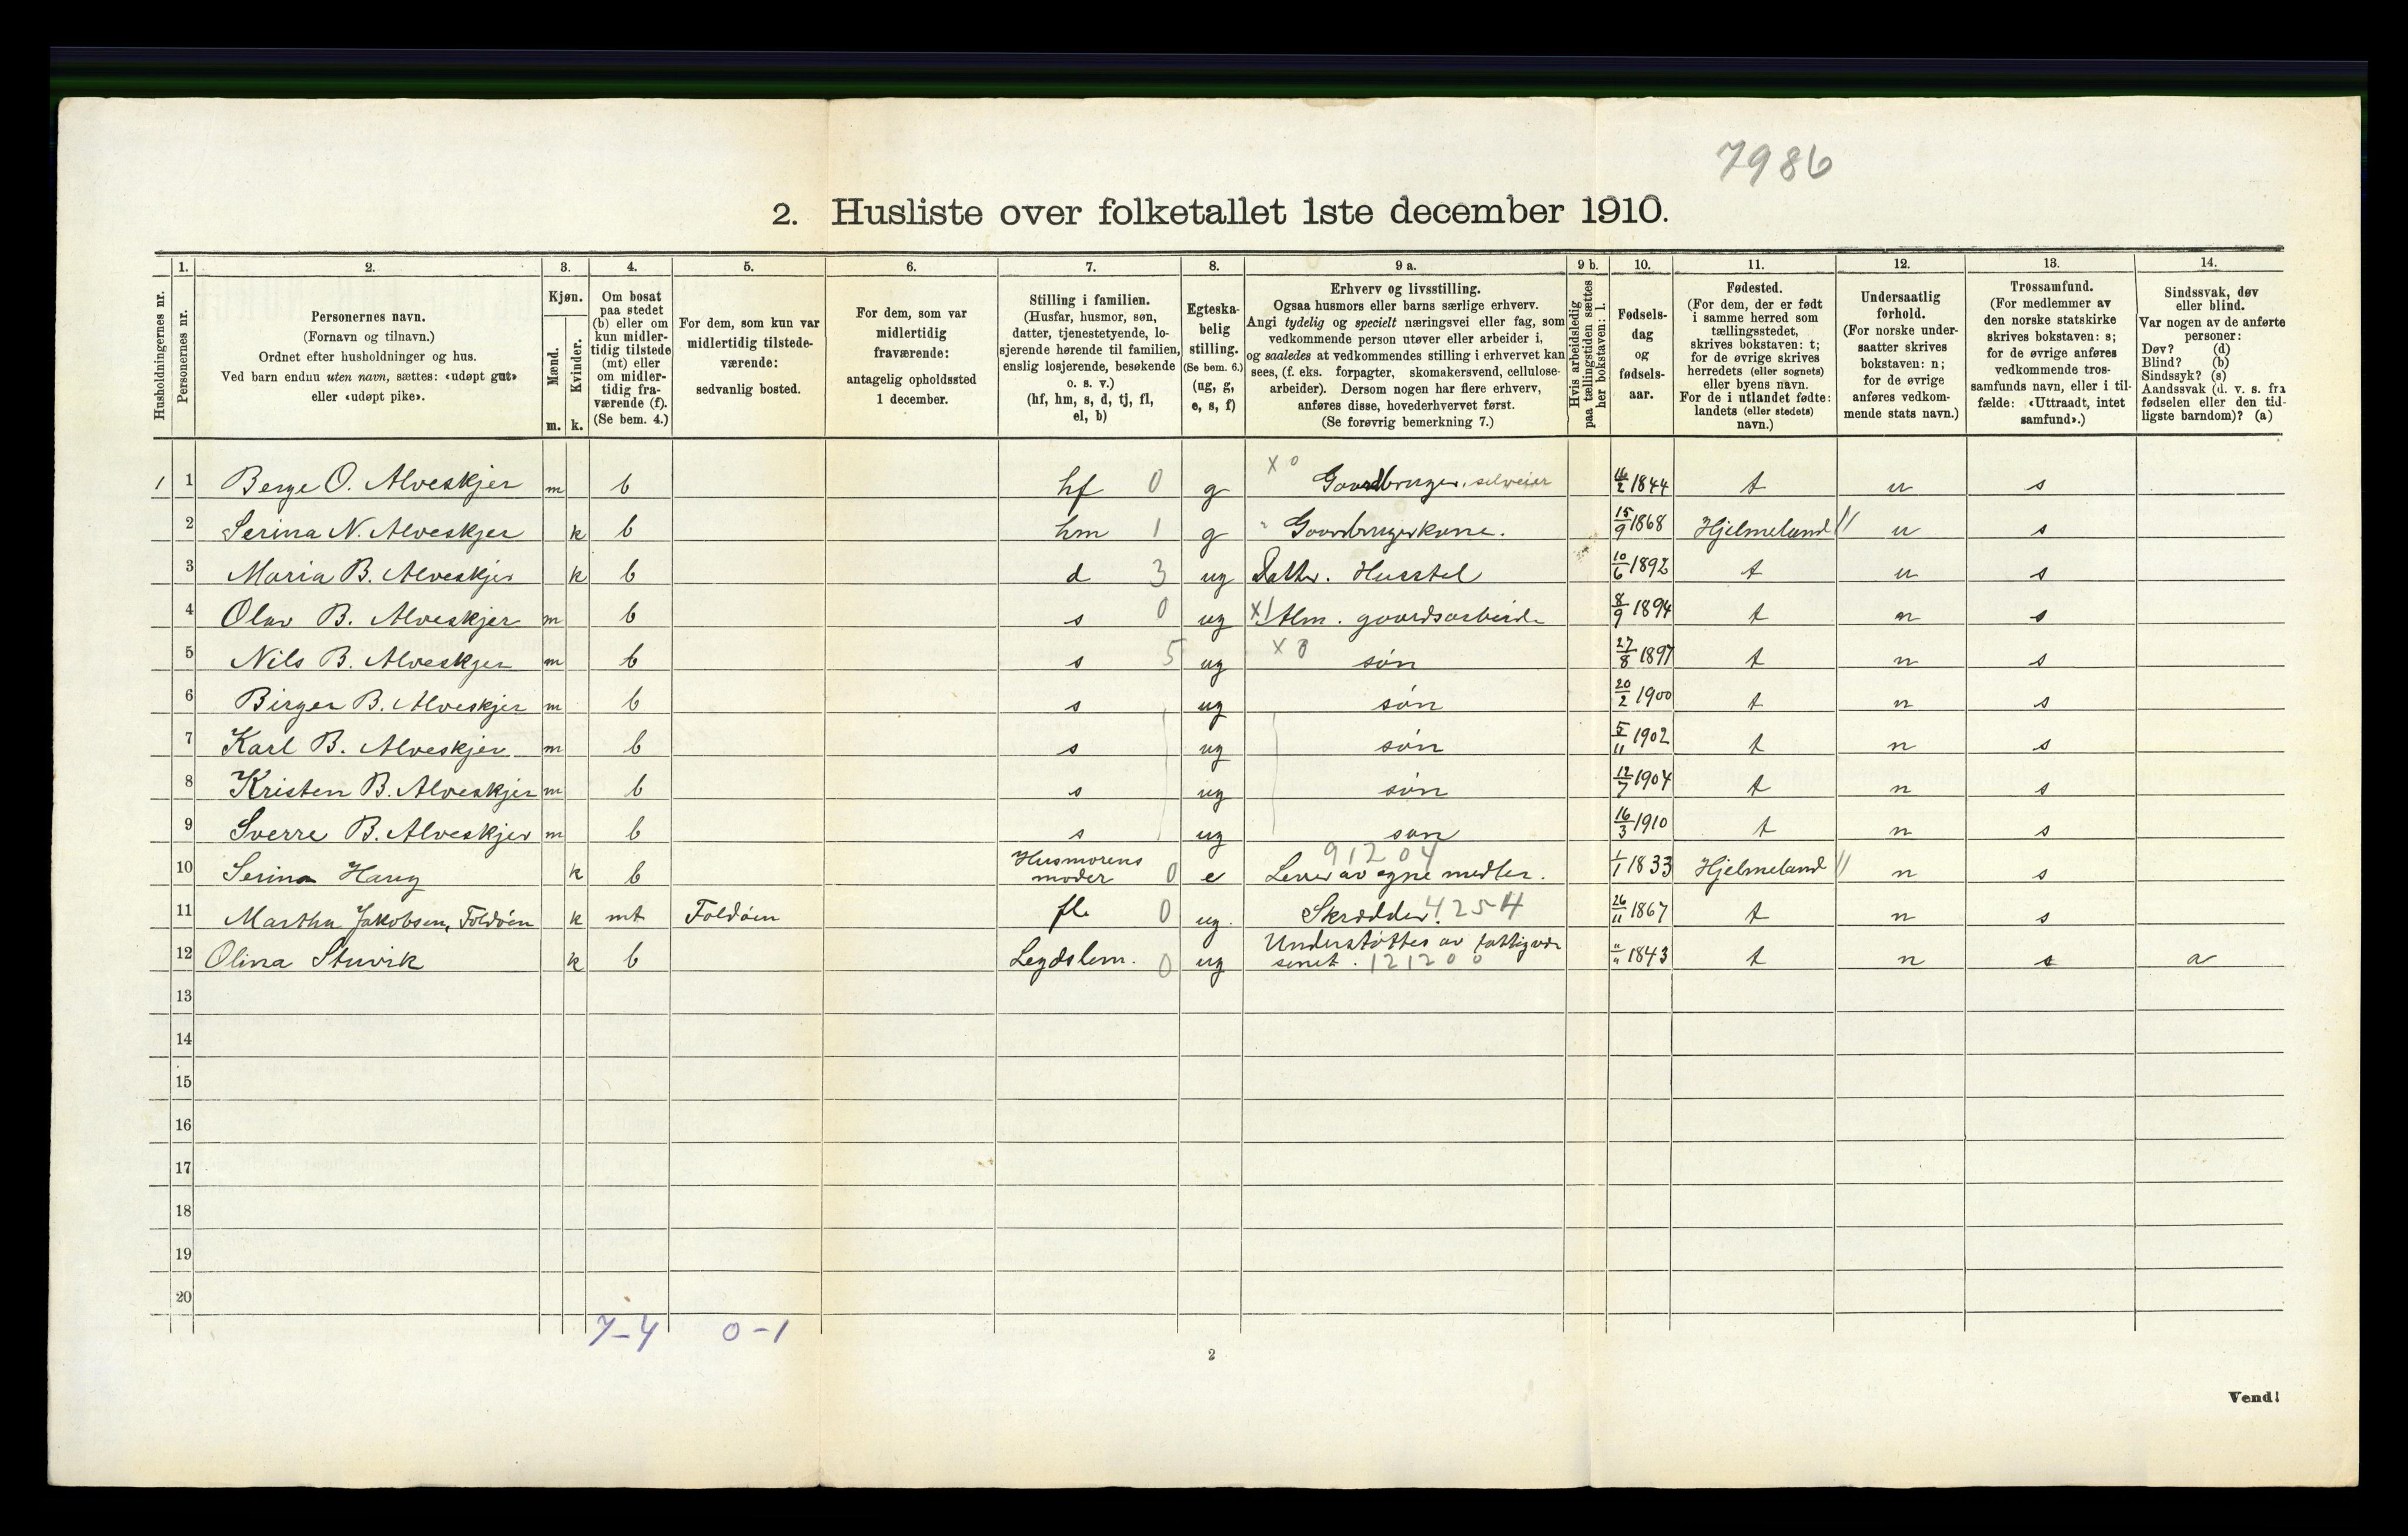 7986
2. Husliste over folketallet 1ste december 1910.
Husholdningernes nr.
1.
Personernes nr.
2.
Personernes navn.
(Fornavn og tilnavn.)
Ordnet efter husholdninger og hus.
Ved barn endnu uten navn, sættes: «udøpt gut»
eller «udøpt pike».
3.
Kjøn.
Mænd.
Kvinder.
m. k.
4.
Om bosat
paa stedet
(b) eller om
kun midler-
tidig tilstede
(mt) eller
om midler-
tidig fra-
værende (f).
(Se bem. 4.)
5.
For dem, som kun var
midlertidig tilstede-
værende:
sedvanlig bosted.
6.
For dem, som var
midlertidig
fraværende:
antagelig opholdssted
1 december.
7.
Stilling i familien.
(Husfar, husmor, søn,
datter, tjenestetyende, lo-
sjerende hørende til familien,
enslig losjerende, besøkende
o. s. v.)
(hf, hm, s, d, tj, fl,
el, b)
8.
Egteska-
belig
stilling.
(Se bem. 6.)
(ug, g,
e, s, f)
9 a.
Erhverv og livsstilling.
Ogsaa husmors eller barns særlige erhverv.
Angi tydelig og specielt næringsvei eller fag, som
vedkommende person utøver eller arbeider i,
og saaledes at vedkommendes stilling i erhvervet kan
sees, (f. eks. forpagter, skomakersvend, cellulose-
arbeider). Dersom nogen har flere erhverv,
anføres disse, hovederhvervet først.
(Se forøvrig bemerkning 7.)
9 b.
Hvis arbeidsledig
paa tællingstiden sættes
her bokstaven: l.
10.
Fødsels-
dag
og
fødsels-
aar.
11.
Fødested.
(For dem, der er født
i samme herred som
tællingsstedet,
skrives bokstaven: t;
for de øvrige skrives
herredets (eller sognets)
eller byens navn.
For de i utlandet fødte:
landets (eller stedets)
navn.)
12.
Undersaatlig
forhold.
(For norske under-
saatter skrives
bokstaven: n;
for de øvrige
anføres vedkom-
mende stats navn.)
13.
Trossamfund.
(For medlemmer av
den norske statskirke
skrives bokstaven: s;
for de øvrige anføres
vedkommende tros-
samfunds navn, eller i til-
fælde: «Uttraadt, intet
samfund».)
14.
Sindssvak, døv
eller blind.
Var nogen av de anførte
personer:
Døv? (d)
Blind? (b)
Sindssyk? (s)
Aandssvak (d. v. s. fra
fødselen eller den tid-
ligste barndom)? (a)
1 1 Berge O. Alveskjer m b hf 0 g x 0 Gaardbruger, selveier 16/2 1844 t n s
2 Serina N. Alveskjer k b hm 1 g Gaardbrugerkone. 15/9 1868 Hjelmeland // n s
3 Maria B. Alveskjer k b d 3 ug Datter. Husstel 10/6 1892 t n s
4 Olav B. Alveskjer m b s 0 ug x1 Alm. gaardsarbeide 8/9 1894 t n s
5 Nils B. Alveskjer m b s 5 ug x 0 søn 27/8 1897 t n s
6 Birger B. Alveskjer m b s ug søn 20/2 1900 t n s
7 Karl B. Alveskjer m b s ug søn 5/11 1902 t n s
8 Kristen B. Alveskjer m b s ug søn 12/7 1904 t n s
9 Sverre B. Alveskjer m b s ug søn 16/3 1910 t n s
10 Serina Haug k b Husmorens moder 0 e 91204 Lever av egne midler. 1/1 1833 Hjelmeland // n s
11 Martha Jakobsen, Foldøen k mt Foldøen fl. 0 ug. Skrædder. 4254 26/11 1867 t n s
12 Olina Stuvik k b Legdslem. 0 ug Understøttes av fattigvæ-
senet. 121200 "/" 1843 t n s a
13
14
15
16
17
18
19
20
7-4 0-1
2
Vend!